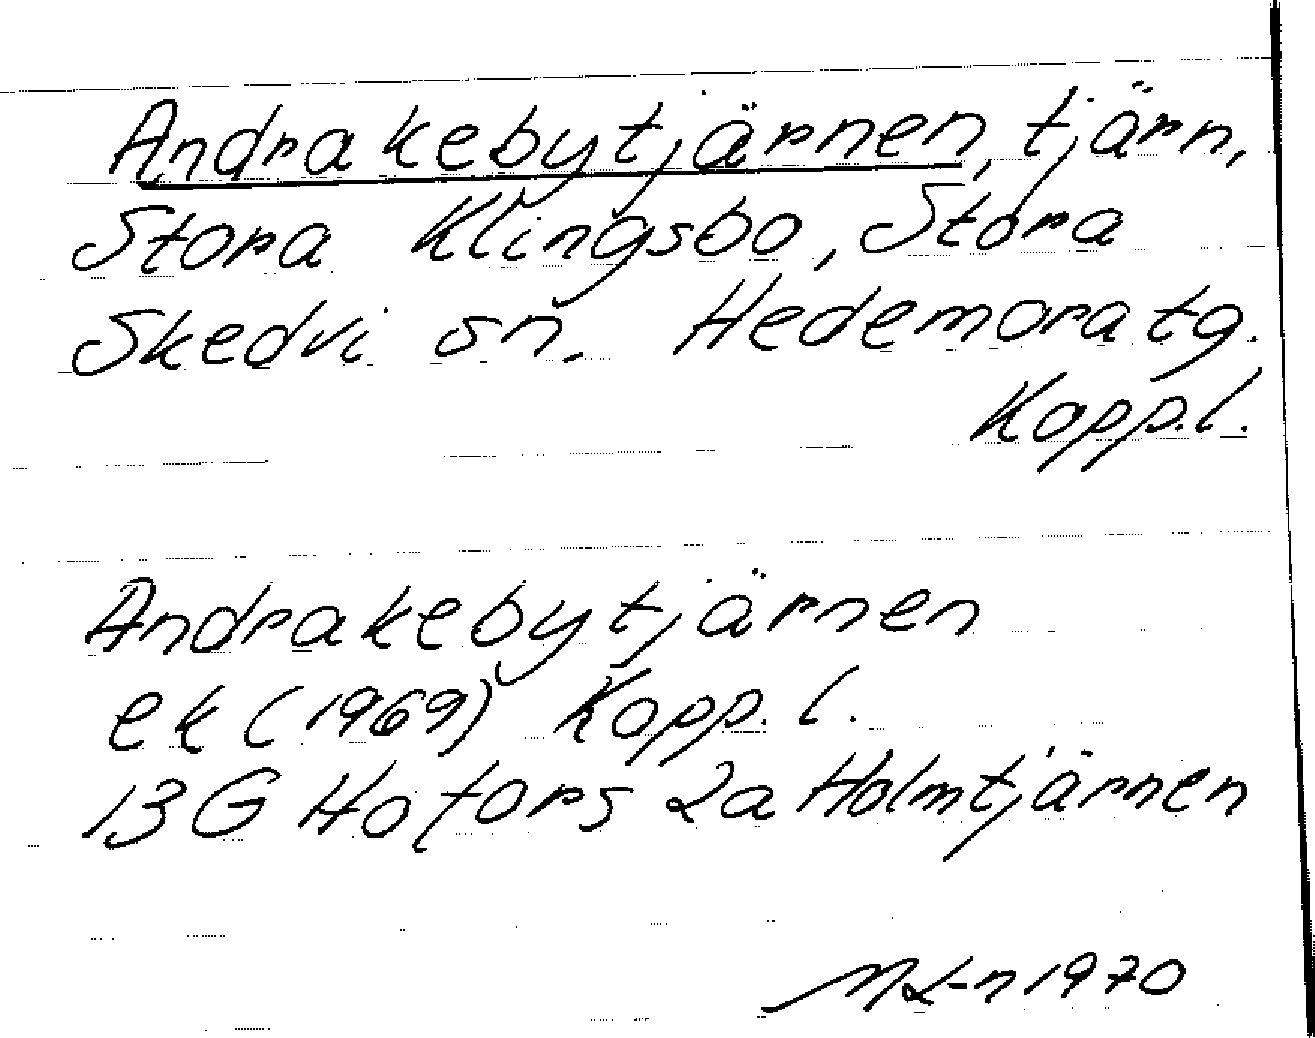 Andrakebytjärnen, tjärn,
Stora Klingsbo, Stora
Skedvi sn. Hedemora tg.
Kopp.l.
Andrakebytjärnen
ek (1969) Kopp. l.
13G Hofors 2a Holmtjärnen
1970